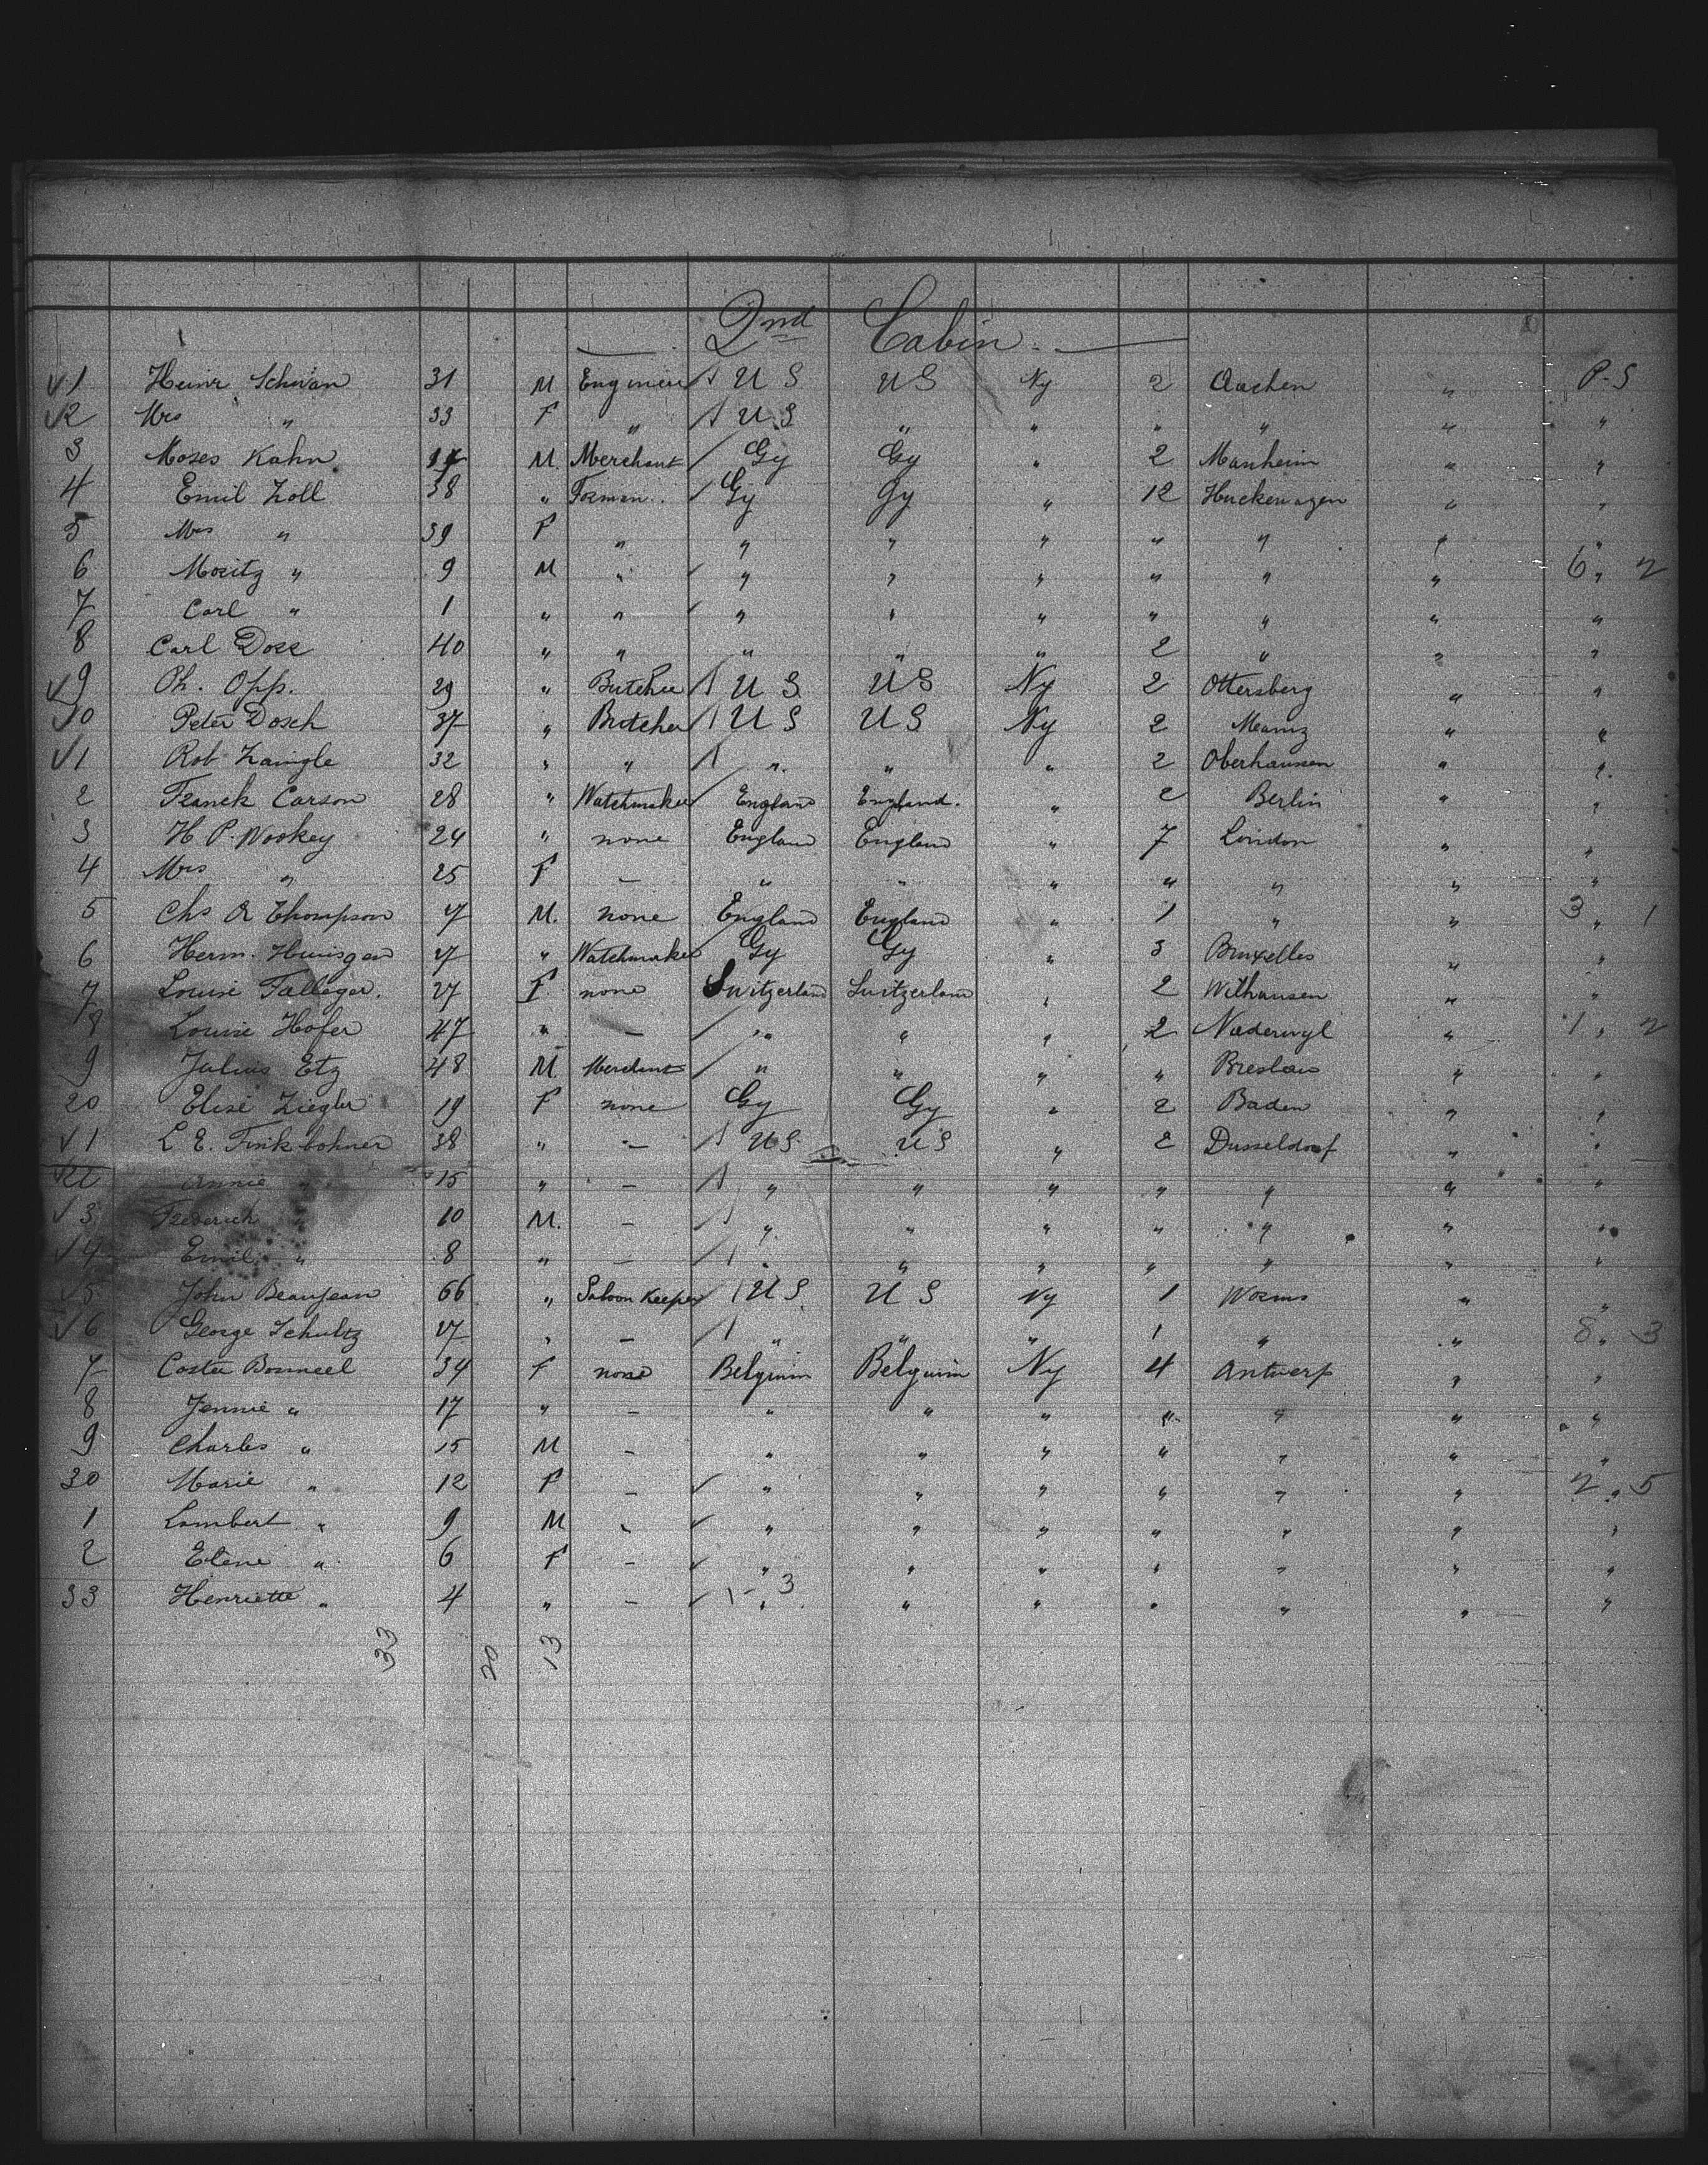 2nd Cabin
√1 Heinr Schwan 31 M Engineer U S U S Ny 2 Aachen " P-S
√2 Mrs " 33 F " U S " " " " " "
3 Moses Kahn M. Merchant Gy Gy " 2 Manheim " "
4 Emil Zoll 38 " Forman Gy Gy " 12 Huckenwagen " "
5 Mrs " 39 F " " " " " " " "
6 Moritz " 9 M " " " " " " " 6 " 2
7 Carl " 1 " " " " " " " " "
8 Carl Dose 40 " " " " " 2 " " "
√9 Ph. Opp. 29 " Butcher U S U S Ny 2 Ottersberg " "
√10 Peter Dosch 37 " Butcher U S U S Ny 2 Mainz " "
√1 Rob Zaingle 32 " " " " " 2 Oberhausen " "
2 Franck Carson 28 " Watchmaker England England. " 2 Berlin " "
3 H P. Wookey 24 " none England England " 7 London " "
4 Mrs " 25 F – " " " " " " "
5 Chs A Thompson M. none England England " 1 " " 3 " 1
6 Herm. Huisgen " Watchmaker Gy Gy " 3 Bruxelles " "
7 Louise Fallegar. 27 F. none Switzerland Switzerland " 2 Withausen " "
8 Louise Hofer 47 " – " " " 2 Naderwyl " 1 " 2
9 Julius Etz 48 M Merchant " " " " Breslau " "
20 Elise Ziegler 19 F none Gy Gy " 2 Baden " "
√1 L E. Finkbohner 38 " – U S U S " 2 Dusseldorf " "
√2 Annie " 15 " – " " " " " " "
√3 Frederich " 10 M. – " " " " " " "
√4 Emil " 8 " – " " " " " " "
√5 John Beaujean 66 " Saloon Keeper U S U S Ny 1 Worms " "
√6 George Schultz 27 " – " " " 1 " " 8 " 3
7 Coster Bonneel 34 F none Belgium Belgium Ny 4 Antwerp " "
8 Jennie " 17 " – " " " " " " "
9 Charles " 15 M – " " " " " " "
30 Marie " 12 F – " " " " " " 2 " 5
1 Lambert " 9 M – " " " " " " "
2 Elene " 6 F – " " " " " " "
33 Henriette " 4 " – 1 - 3 " " " " " " "
33 20 13